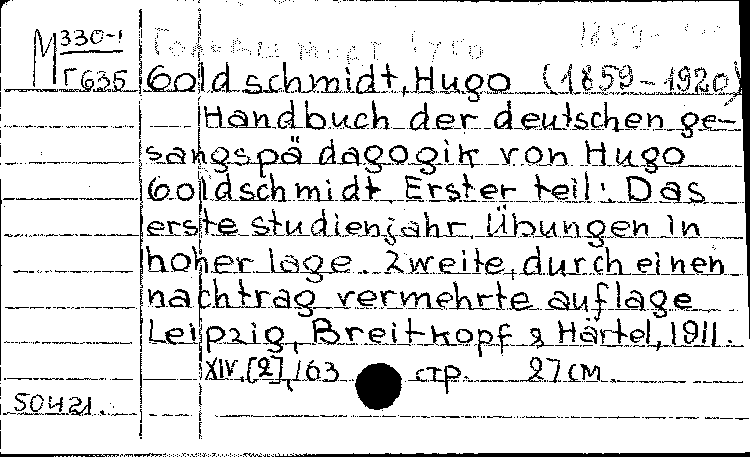 М 330-1
Г 635
Goldschmidt, Hugo (1859-1920)
Handbuch der deutschen ge-
sangspädagogik von Hugo
Goldschmidt. Erster teil: Das
erste studienjahr. Übungen in
hoher lage. Zweite, durch einen
nachtrag vermehrte auflage
Leipzig, Breitkopf & Härtel, 1911.
XIV, [2], 163 стр. 27 см.
50421.